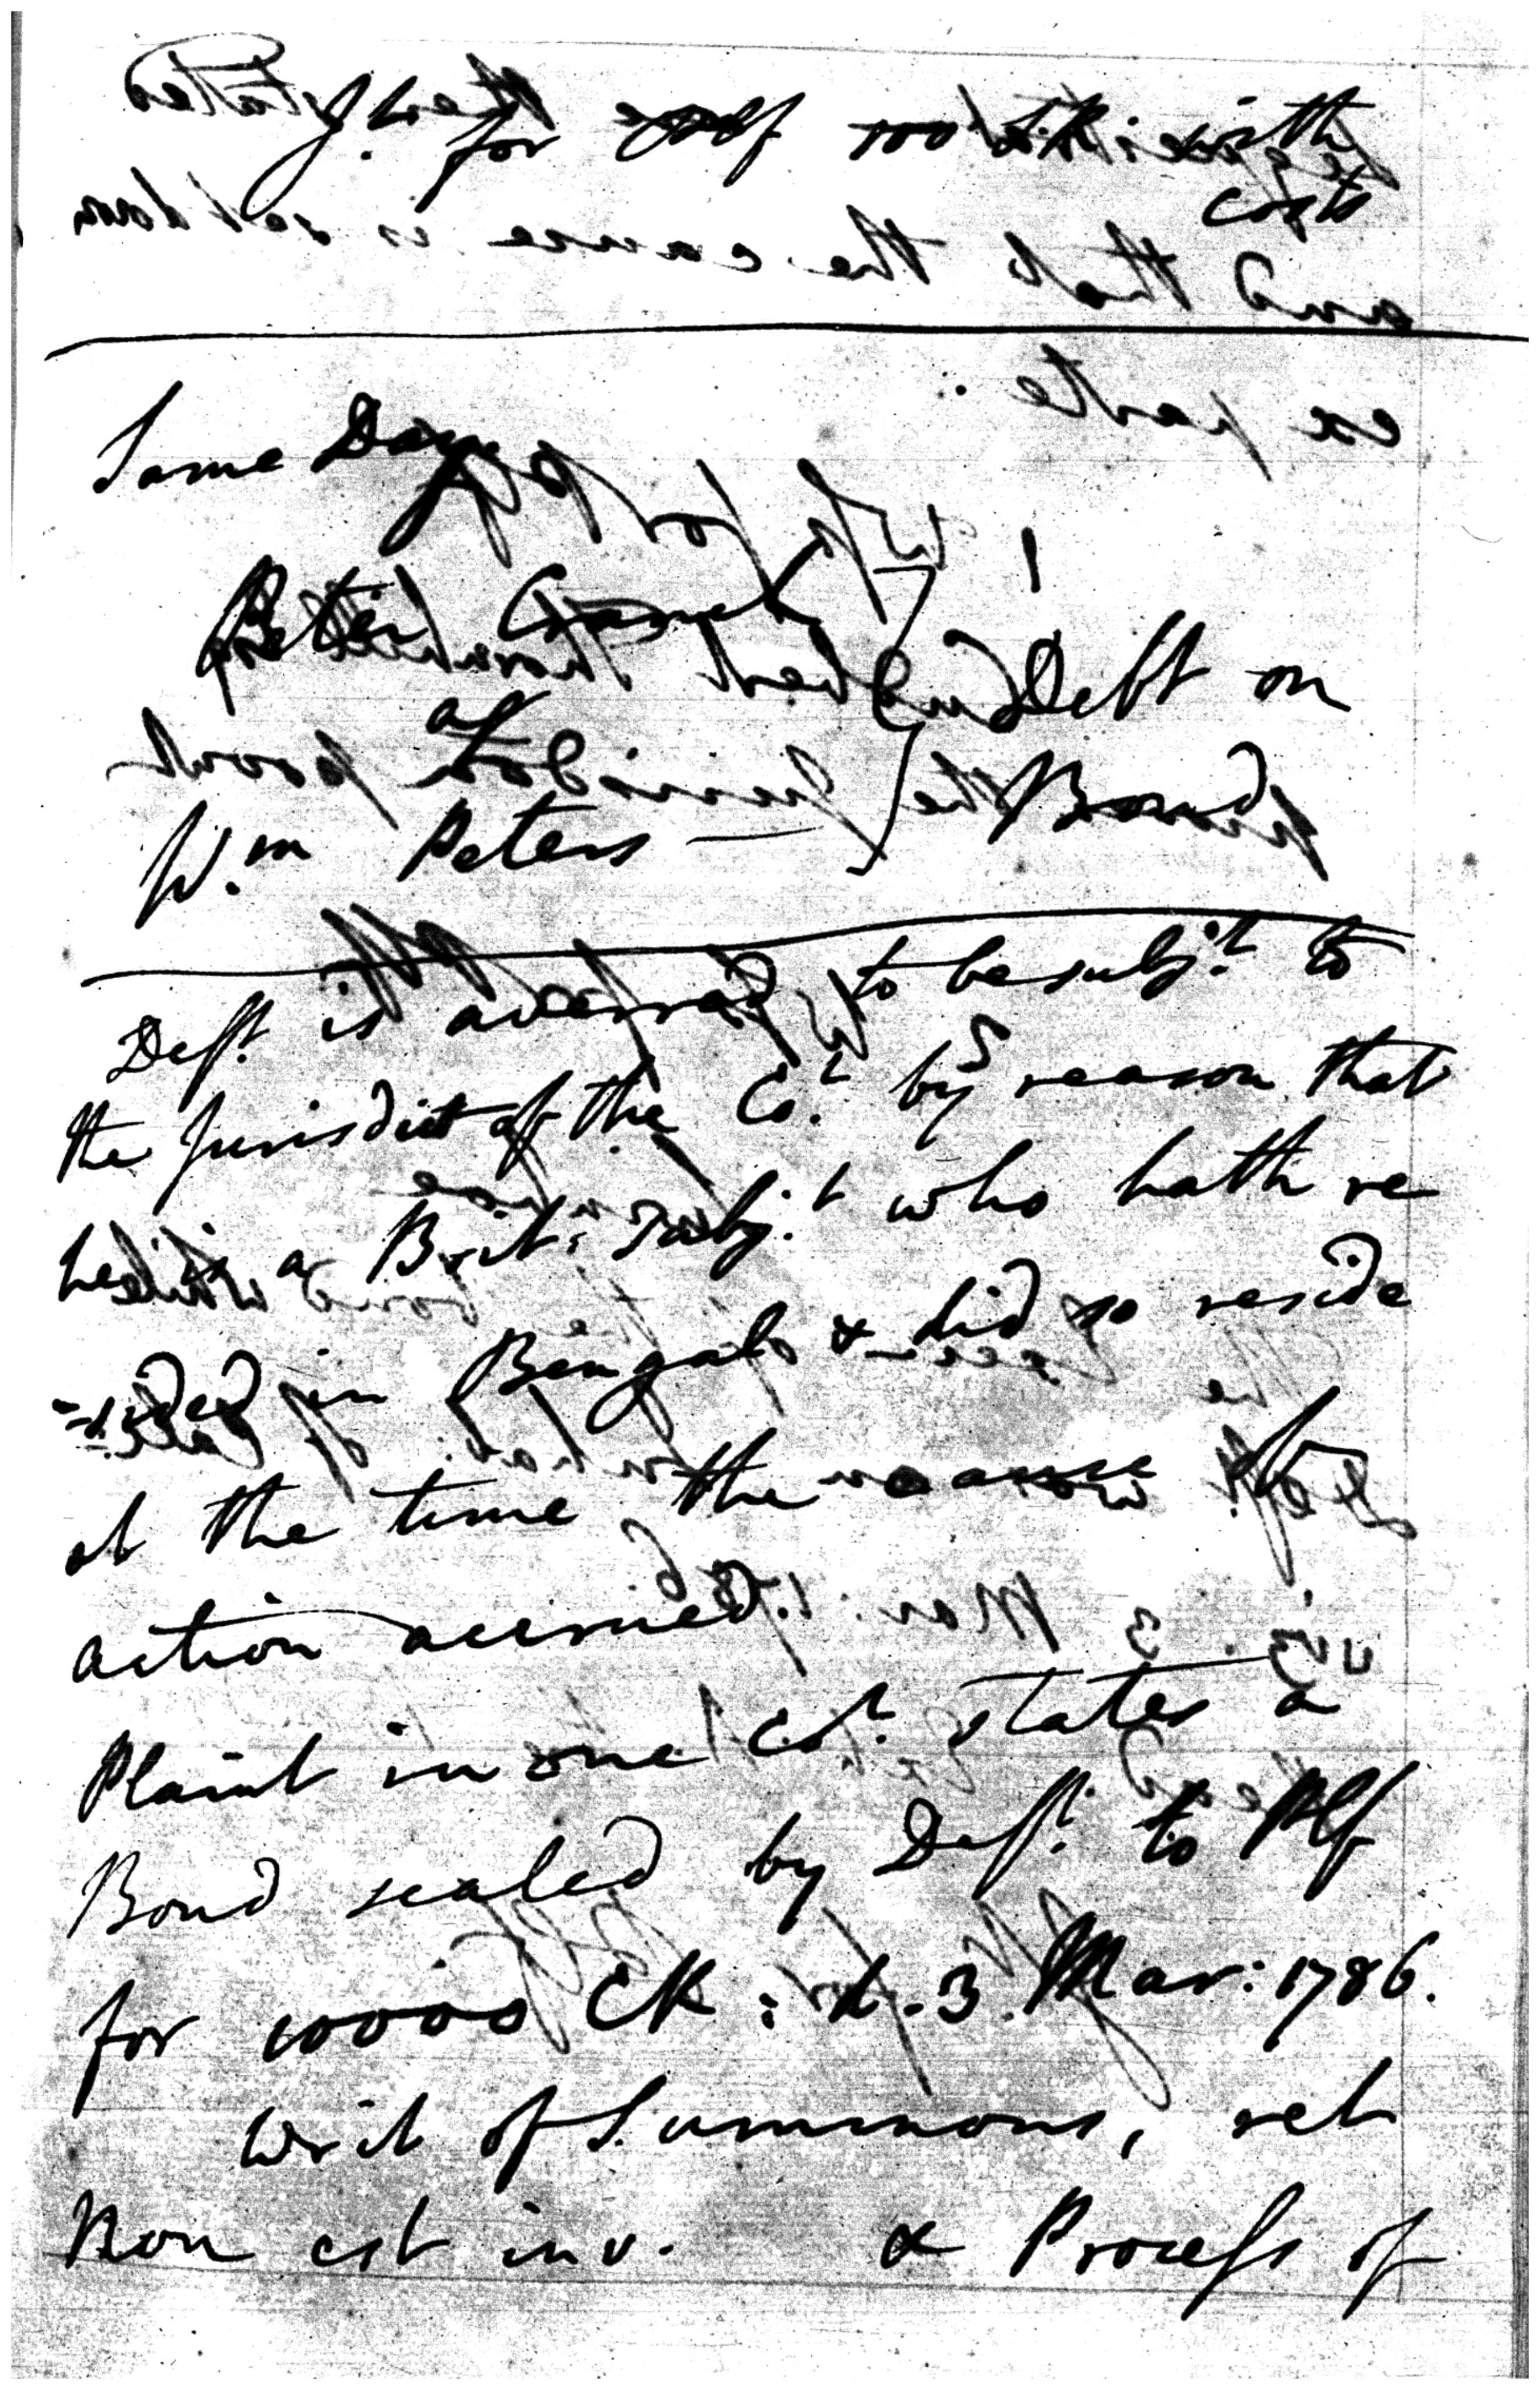 J. for Plf 100 S.R. with
costs
Same Day
Peter
agt
Wm Peters —
Debt on
Bond
Deft. is averred to be subj.t to
the Jurisdict of the Co.t by reason that
he is a Brit: Subj.t who hath re
=sided in Bengal & did so reside
at the time the cause of
action accrued
Plaint in one Co.t states a
Bond sealed by Deft. to Plf
for 10000 CR: d. 3. Mar: 1786.
Writ of Summons, ret
Non est inv. & Process of